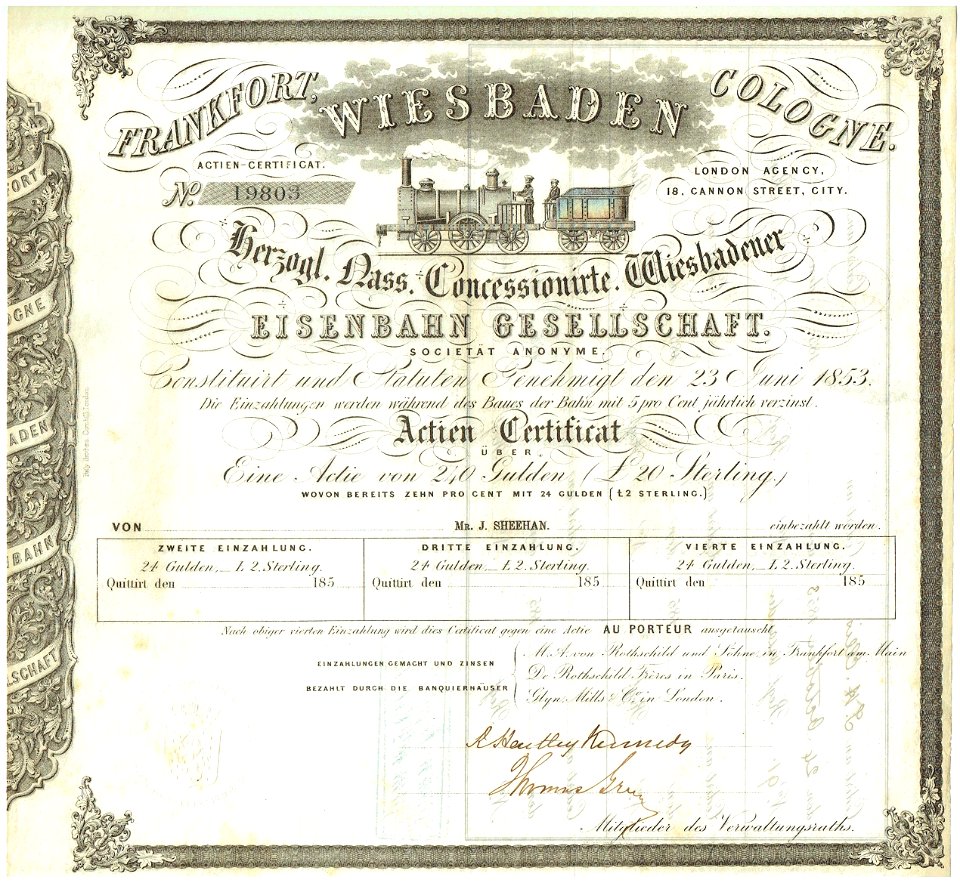 FRANKFORT, WIESBADEN COLOGNE.
ACTIEN-CERTIFICAT.
No. 19803
LONDON AGENCY,
18, CANNON STREET, CITY.
Herzogl. Nass. Concessionirte. Wiesbadener
EISENBAHN GESELLSCHAFT.
SOCIETÄT ANONYME.
Constituirt und Statuten Genehmigt den 23 Juni 1853.
Die Einzahlungen werden während des Baues der Bahn mit 5 pro Cent jährlich verzinst.
Actien Certificat
ÜBER
Eine Actie von 240 Gulden (£20 Sterling.)
WOVON BEREITS ZEHN PRO CENT MIT 24 GULDEN (£2 STERLING.)
VON MR. J. SHEEHAN. einbezahlt worden.
ZWEITE EINZAHLUNG.
24 Gulden, £ 2. Sterling.
Quittirt den 185
DRITTE EINZAHLUNG.
24 Gulden, £ 2. Sterling.
Quittirt den 185
VIERTE EINZAHLUNG.
24 Gulden, £ 2. Sterling.
Quittirt den 185
Nach obiger vierten Einzahlung wird dies Certificat gegen eine Actie AU PORTEUR ausgetauscht
EINZAHLUNGEN GEMACHT UND ZINSEN
BEZAHLT DURCH DIE BANQUIERHÄUSER
M. A. von Rothschild und Söhne, in Frankfort am Main
De Rothschild Frères in Paris.
Glyn, Mills & Co. in London.
R Hartley Kennedy
Thomas
Mitglieder des Verwaltungsraths.
FORT
OGNE
ADEN
NBAHN
LSCHAFT